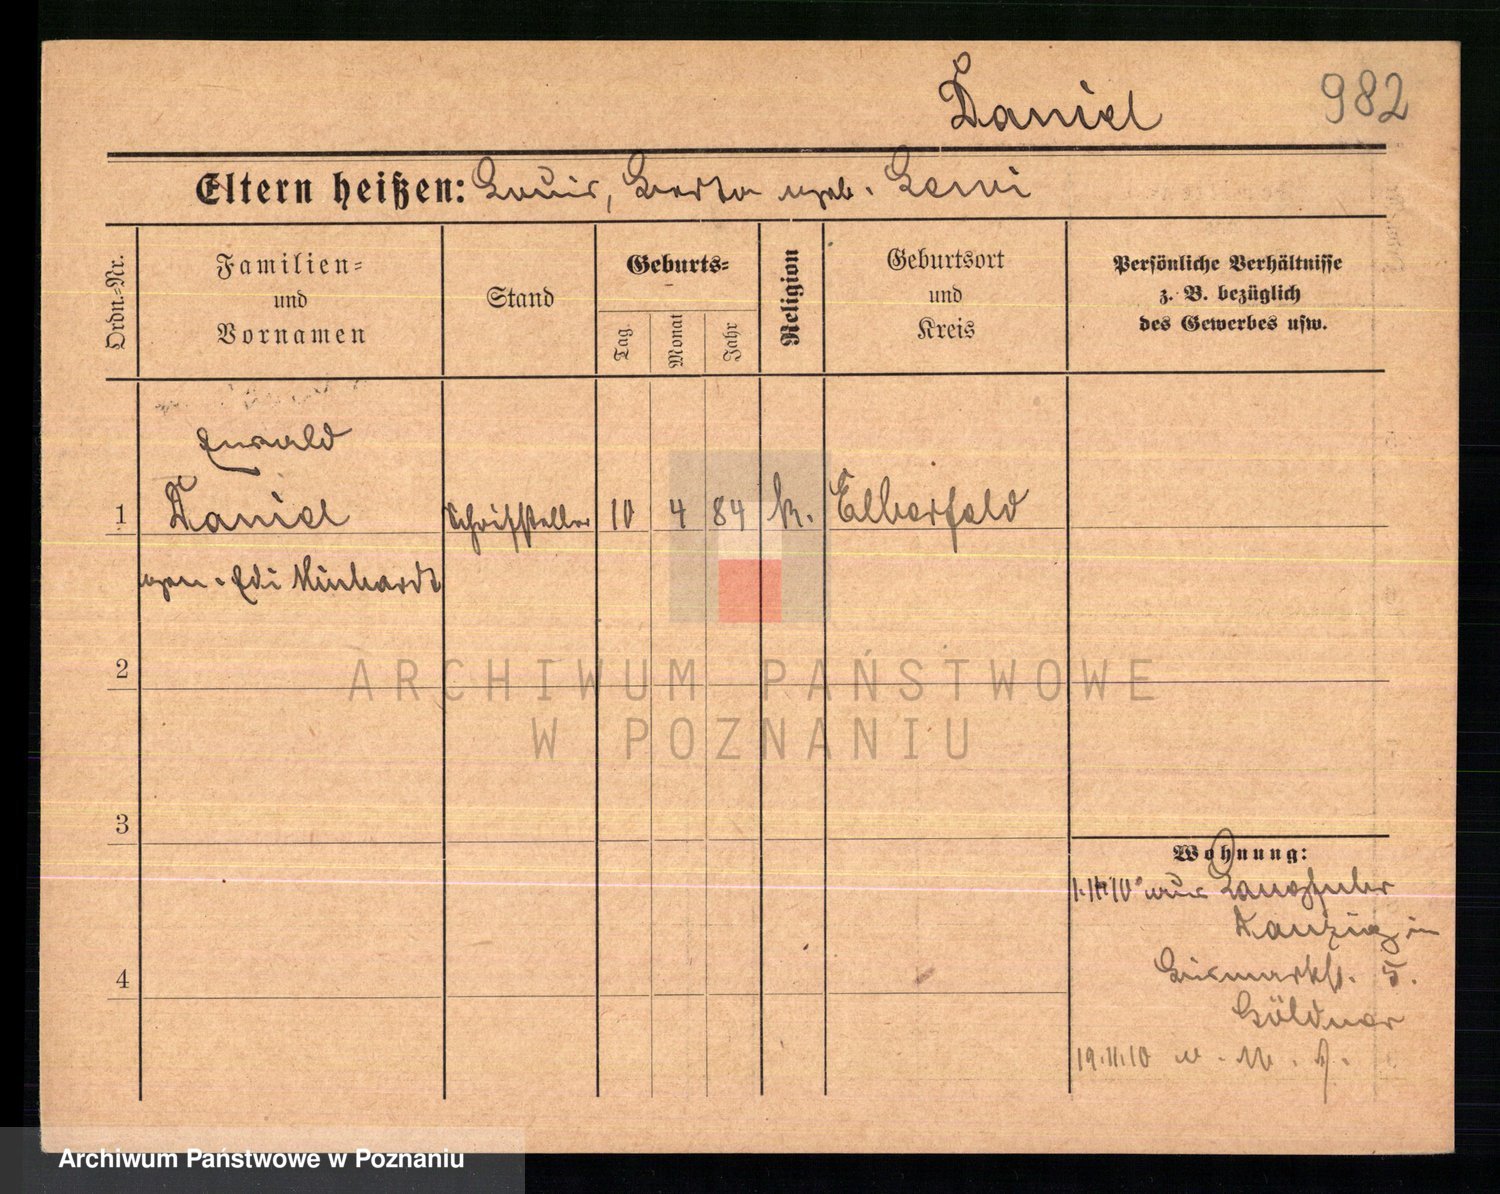 Daniel
982
Eltern heißen: Louis, Berta geb. Levi
Ordn.=Nr.
Familien=
und
Vornamen
Stand
Geburts=
Tag.
Monat
Jahr
Religion
Geburtsort
und
Kreis
Persönliche Verhältnisse
z. B. bezüglich
des Gewerbes usw.
Ewald
1 Daniel Schriftsteller 10 4 84 k. Elberfeld
gen. Edi Minhardt
2
ARCHIWUM PAŃSTWOWE
W POZNANIU
3
Wohnung:
1.11.10 aus Langfuhr
Danzig in
Bismarkstr. 5.
Göldner
4
19.11.10 n.
Archiwum Państwowe w Poznaniu